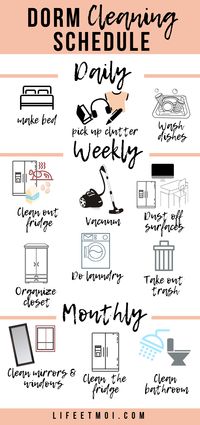 DORM Cleaning
SCHEDULE
Daily
make bed
pick up clutter
Wash
dishes
Weekly
Clean out
fridge
Vacuum
Dust off
surfaces
Organize
closet
Do laundry
Take out
trash
Monthly
Clean mirrors &
windows
Clean the
fridge
Clean
bathroom
LIFEETMOI.COM